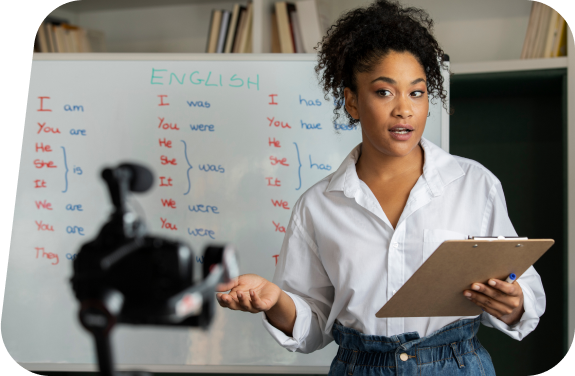 ENGLISH
I am
You are
He
She
It
is
We are
You are
They
I was
You were
He
She
It
was
We were
You were
I has
You have been
He
She
It
has
We